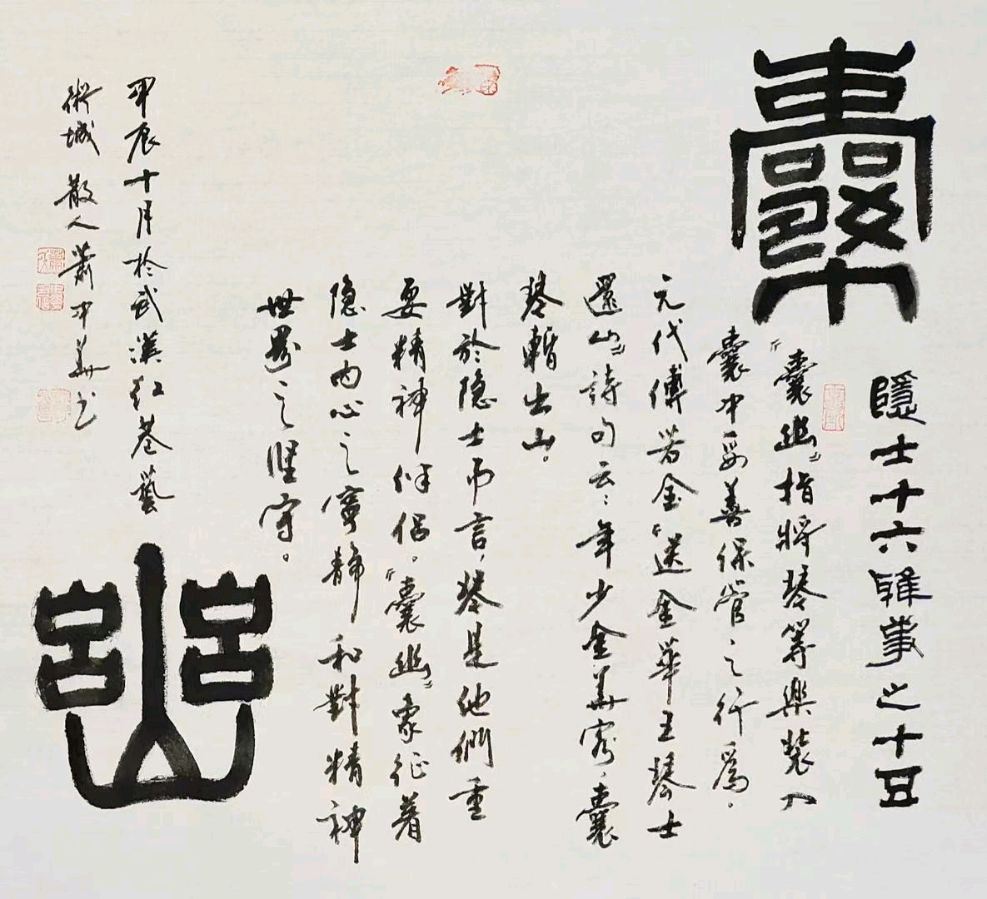 囊
幽
隱士十六雅事之十五
『囊幽』指將琴等樂裝入
囊中妥善保管之行爲，
元代傅若金『送金華王琴士
還山』詩句云：年少金華客，囊
琴暫出山。
對於隐士而言，琴是他們重
要精神伴侣。『囊幽』象征着
隐士内心之寧静和對精神
世界之堅守。
甲辰十月於武漢红巷藝
術城 散人蕭中華书